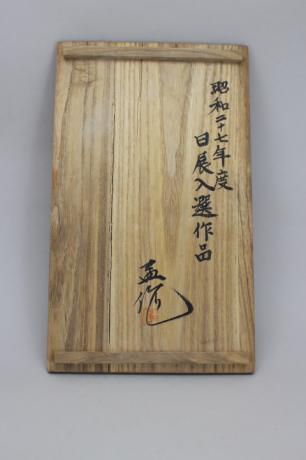 昭和二十七年度
日展入選作品
孟作